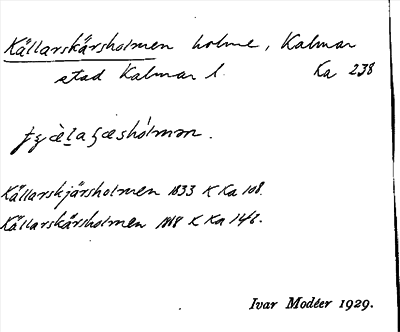 Källarskärsholmen holme, Kalmar
stad Kalmar l. Ka 238
Källarskjärsholmen 1833 K Ka 108.
Källarskärsholmen K Ka
Ivar Modéer 1929.